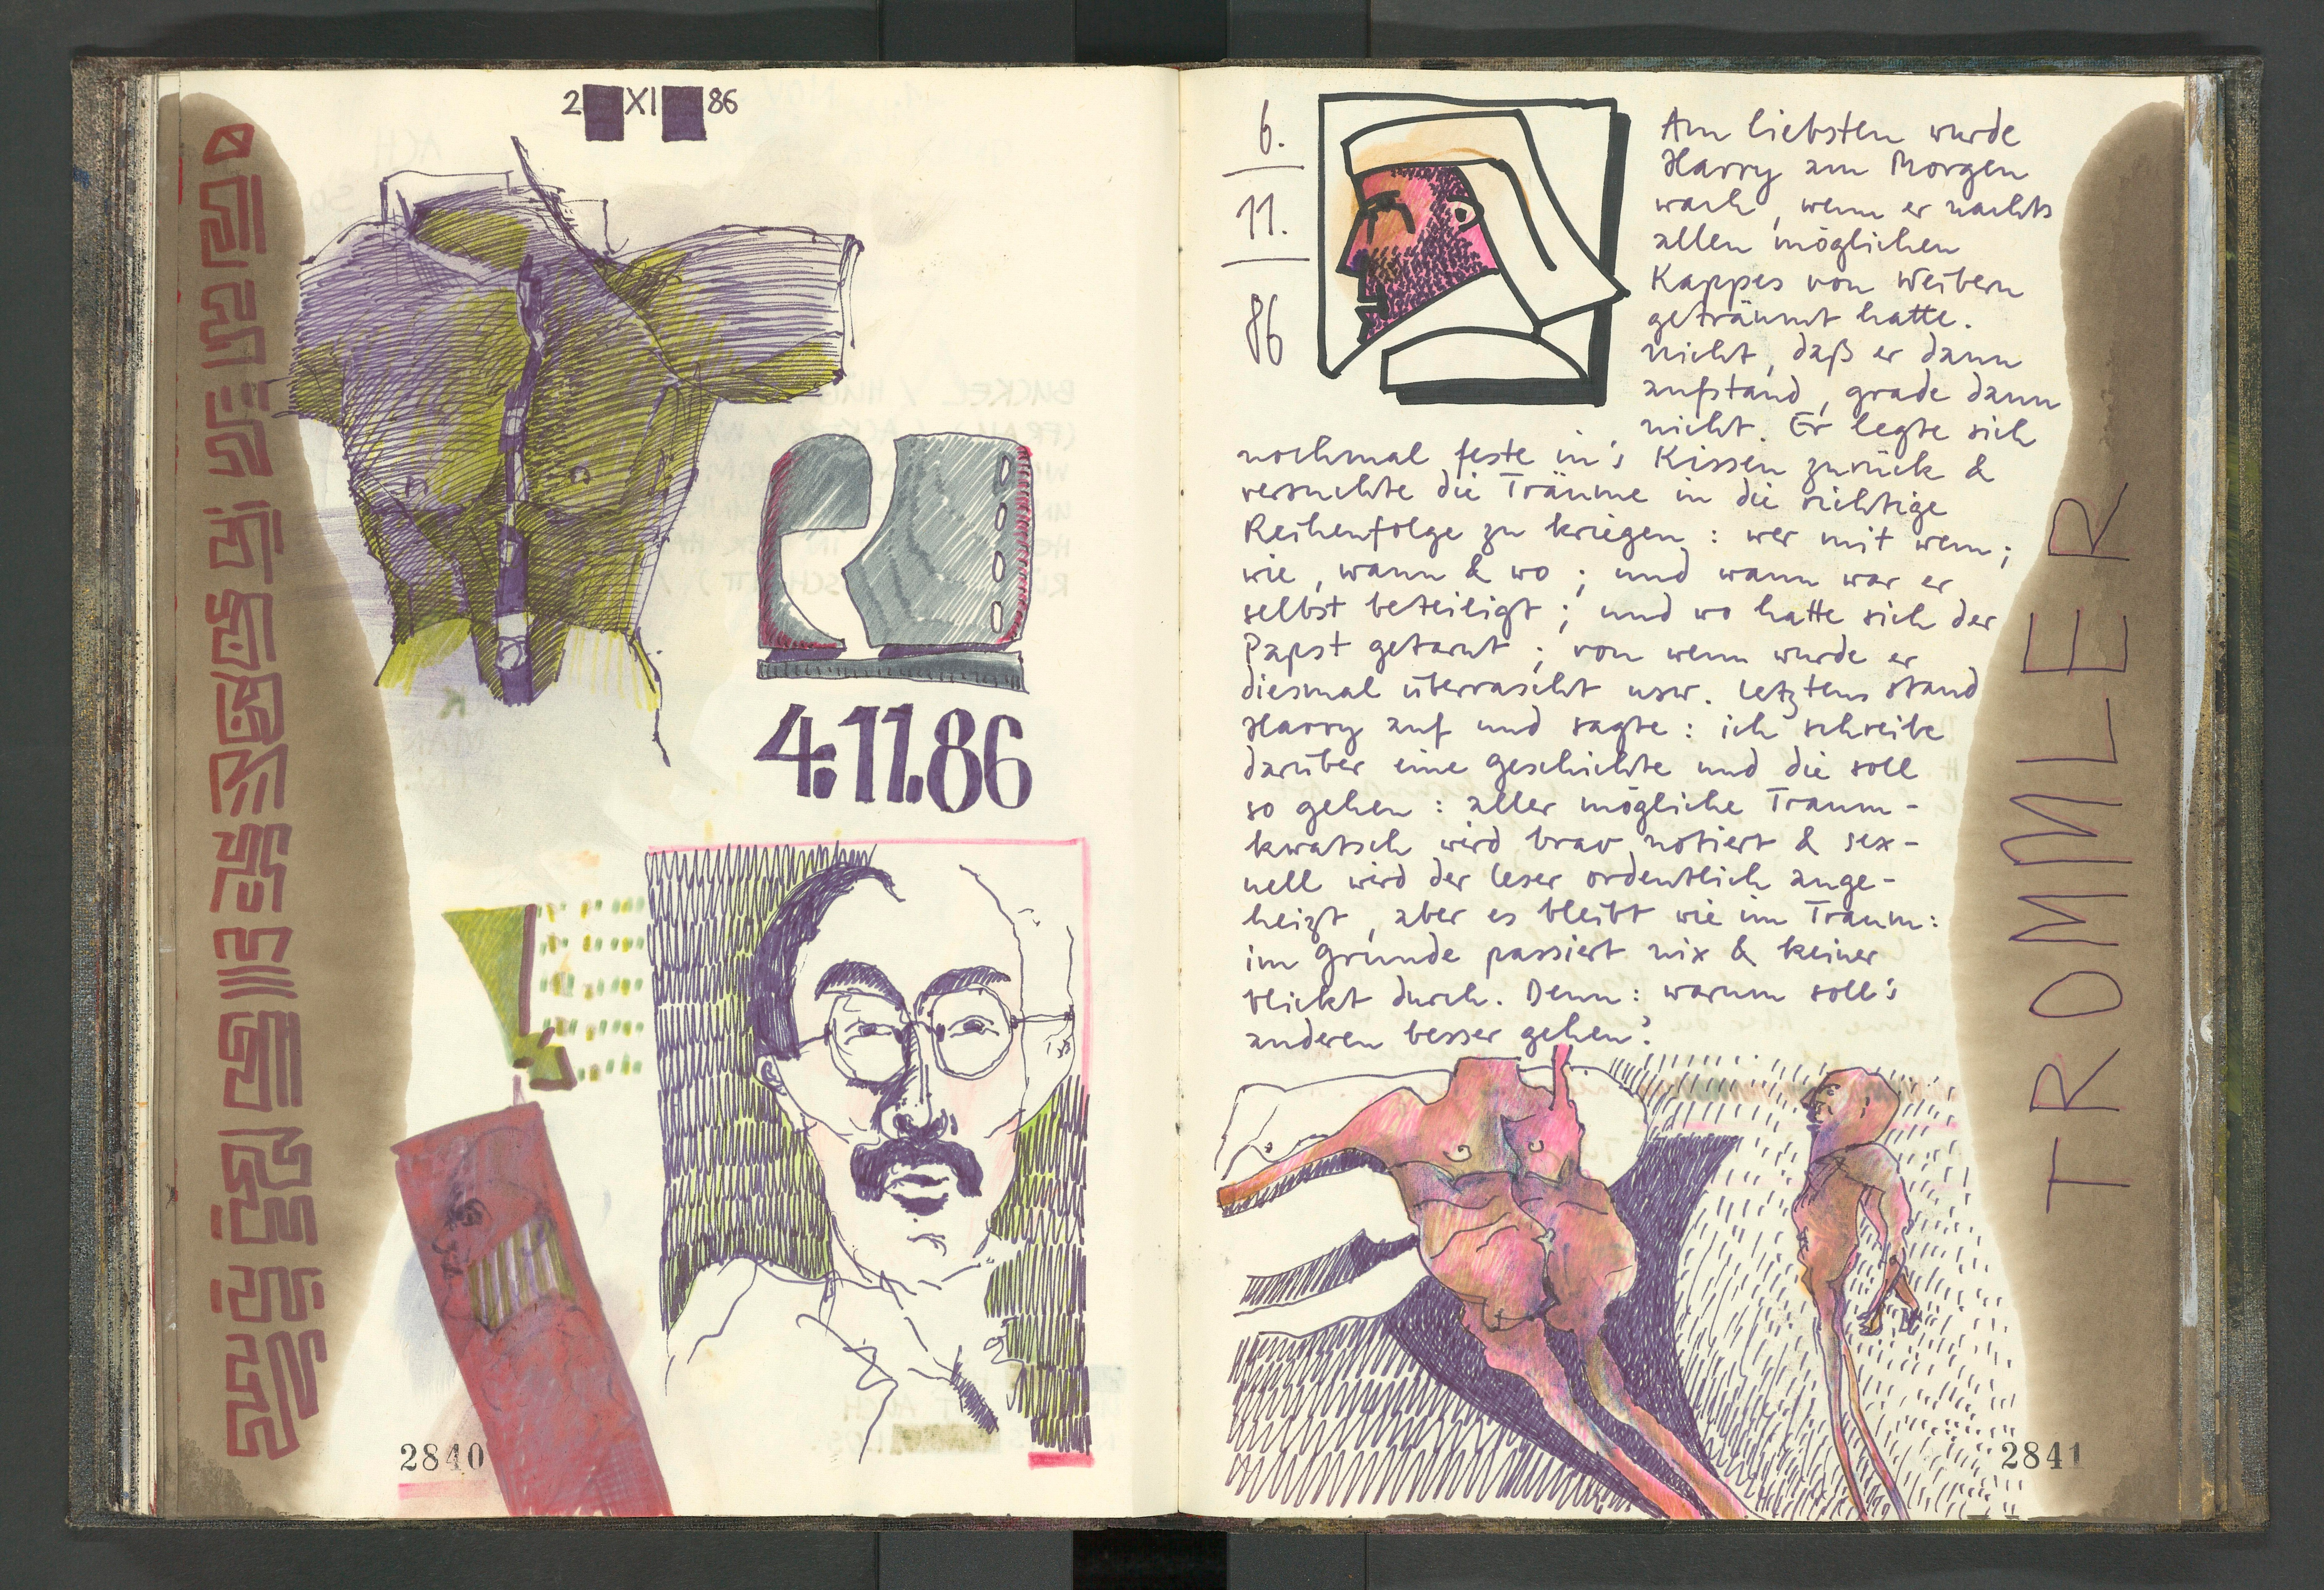 2 XI 86
4.11.86
2840
6.
11.
86
Am liebsten wurde
Harry am Morgen
wach, wenn er nachts
allen möglichen
Kappes von Weibern
geträumt hatte.
nicht, daß er dann
aufstand, grade dann
nicht. Er legte sich
nochmal feste in's Kissen zurück &
versuchte die Träume in die richtige
Reihenfolge zu kriegen: wer mit wem;
wie, wann & wo; und wann war er
selbst beteiligt; und wo hatte sich der
Papst getarnt; von wem wurde er
diesmal überrascht usw. letztens stand
Harry auf und sagte: ich schreibe
darüber eine Geschichte und die soll
so gehen: aller mögliche Traum-
kwatsch wird brav notiert & sex-
uell wird der Leser ordentlich ange-
heizt, aber es bleibt wie im Traum:
im Grunde passiert nix & keiner
blickt durch. Denn: warum soll's
anderen besser gehen?
TROMMLER
2841